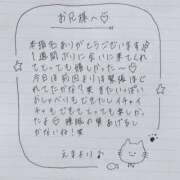 お兄様へ♡
本指名ありがとうございます♡
1週間ぶりに会いに来てくれて
とっても嬉しかったー♡
今日は前回よりは緊張ほぐ
れてたかな？来たいっぱい
おしゃべりもできたしイチャイ
チャもできてとっても楽しかっ
たよ♡ 時間の
かないね！笑
えまより♪